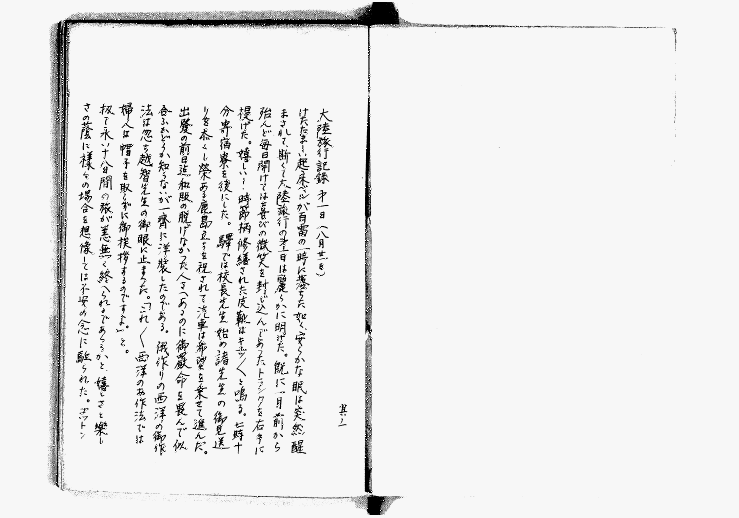 大陸旅行記録 第一日（八月廿一日）
其ノ一
けたたましい起床ベルが百雷の一時に落ちた如く、安らかな眠は突然醒
まされて、断くて大陸旅行の第一日は麗らかに明けた。既に一ヶ月前から
殆んど毎日開けては喜びの微笑を封じ込んであったトランクを右手に
提げた。嬉しい！時節柄修繕された皮靴はキュッ〳〵と鳴る。七時十
分寄宿寮を後にした。驛では校長先生始め諸先生の御見送
りを忝くし榮ある鹿島立ちを祝されて汽車は希望を乗せて進んだ。
出発の前日迄和服の脱げなかった人さへあるのに御厳命を畏んで似
合ふかどうか知らないが一齊に洋装したのである。俄作りの西洋の御作
法は忽ち越智先生の御眼に止まった。「これ〳〵西洋のお作法では
婦人は帽子を取らずに御挨拶するのですよ。」と。
扨て永い十八日間の旅が恙無く終へられるであらうかと、嬉しさと樂し
さの蔭に様々の場合を想像しては不安の念に駈られた。ボツトン